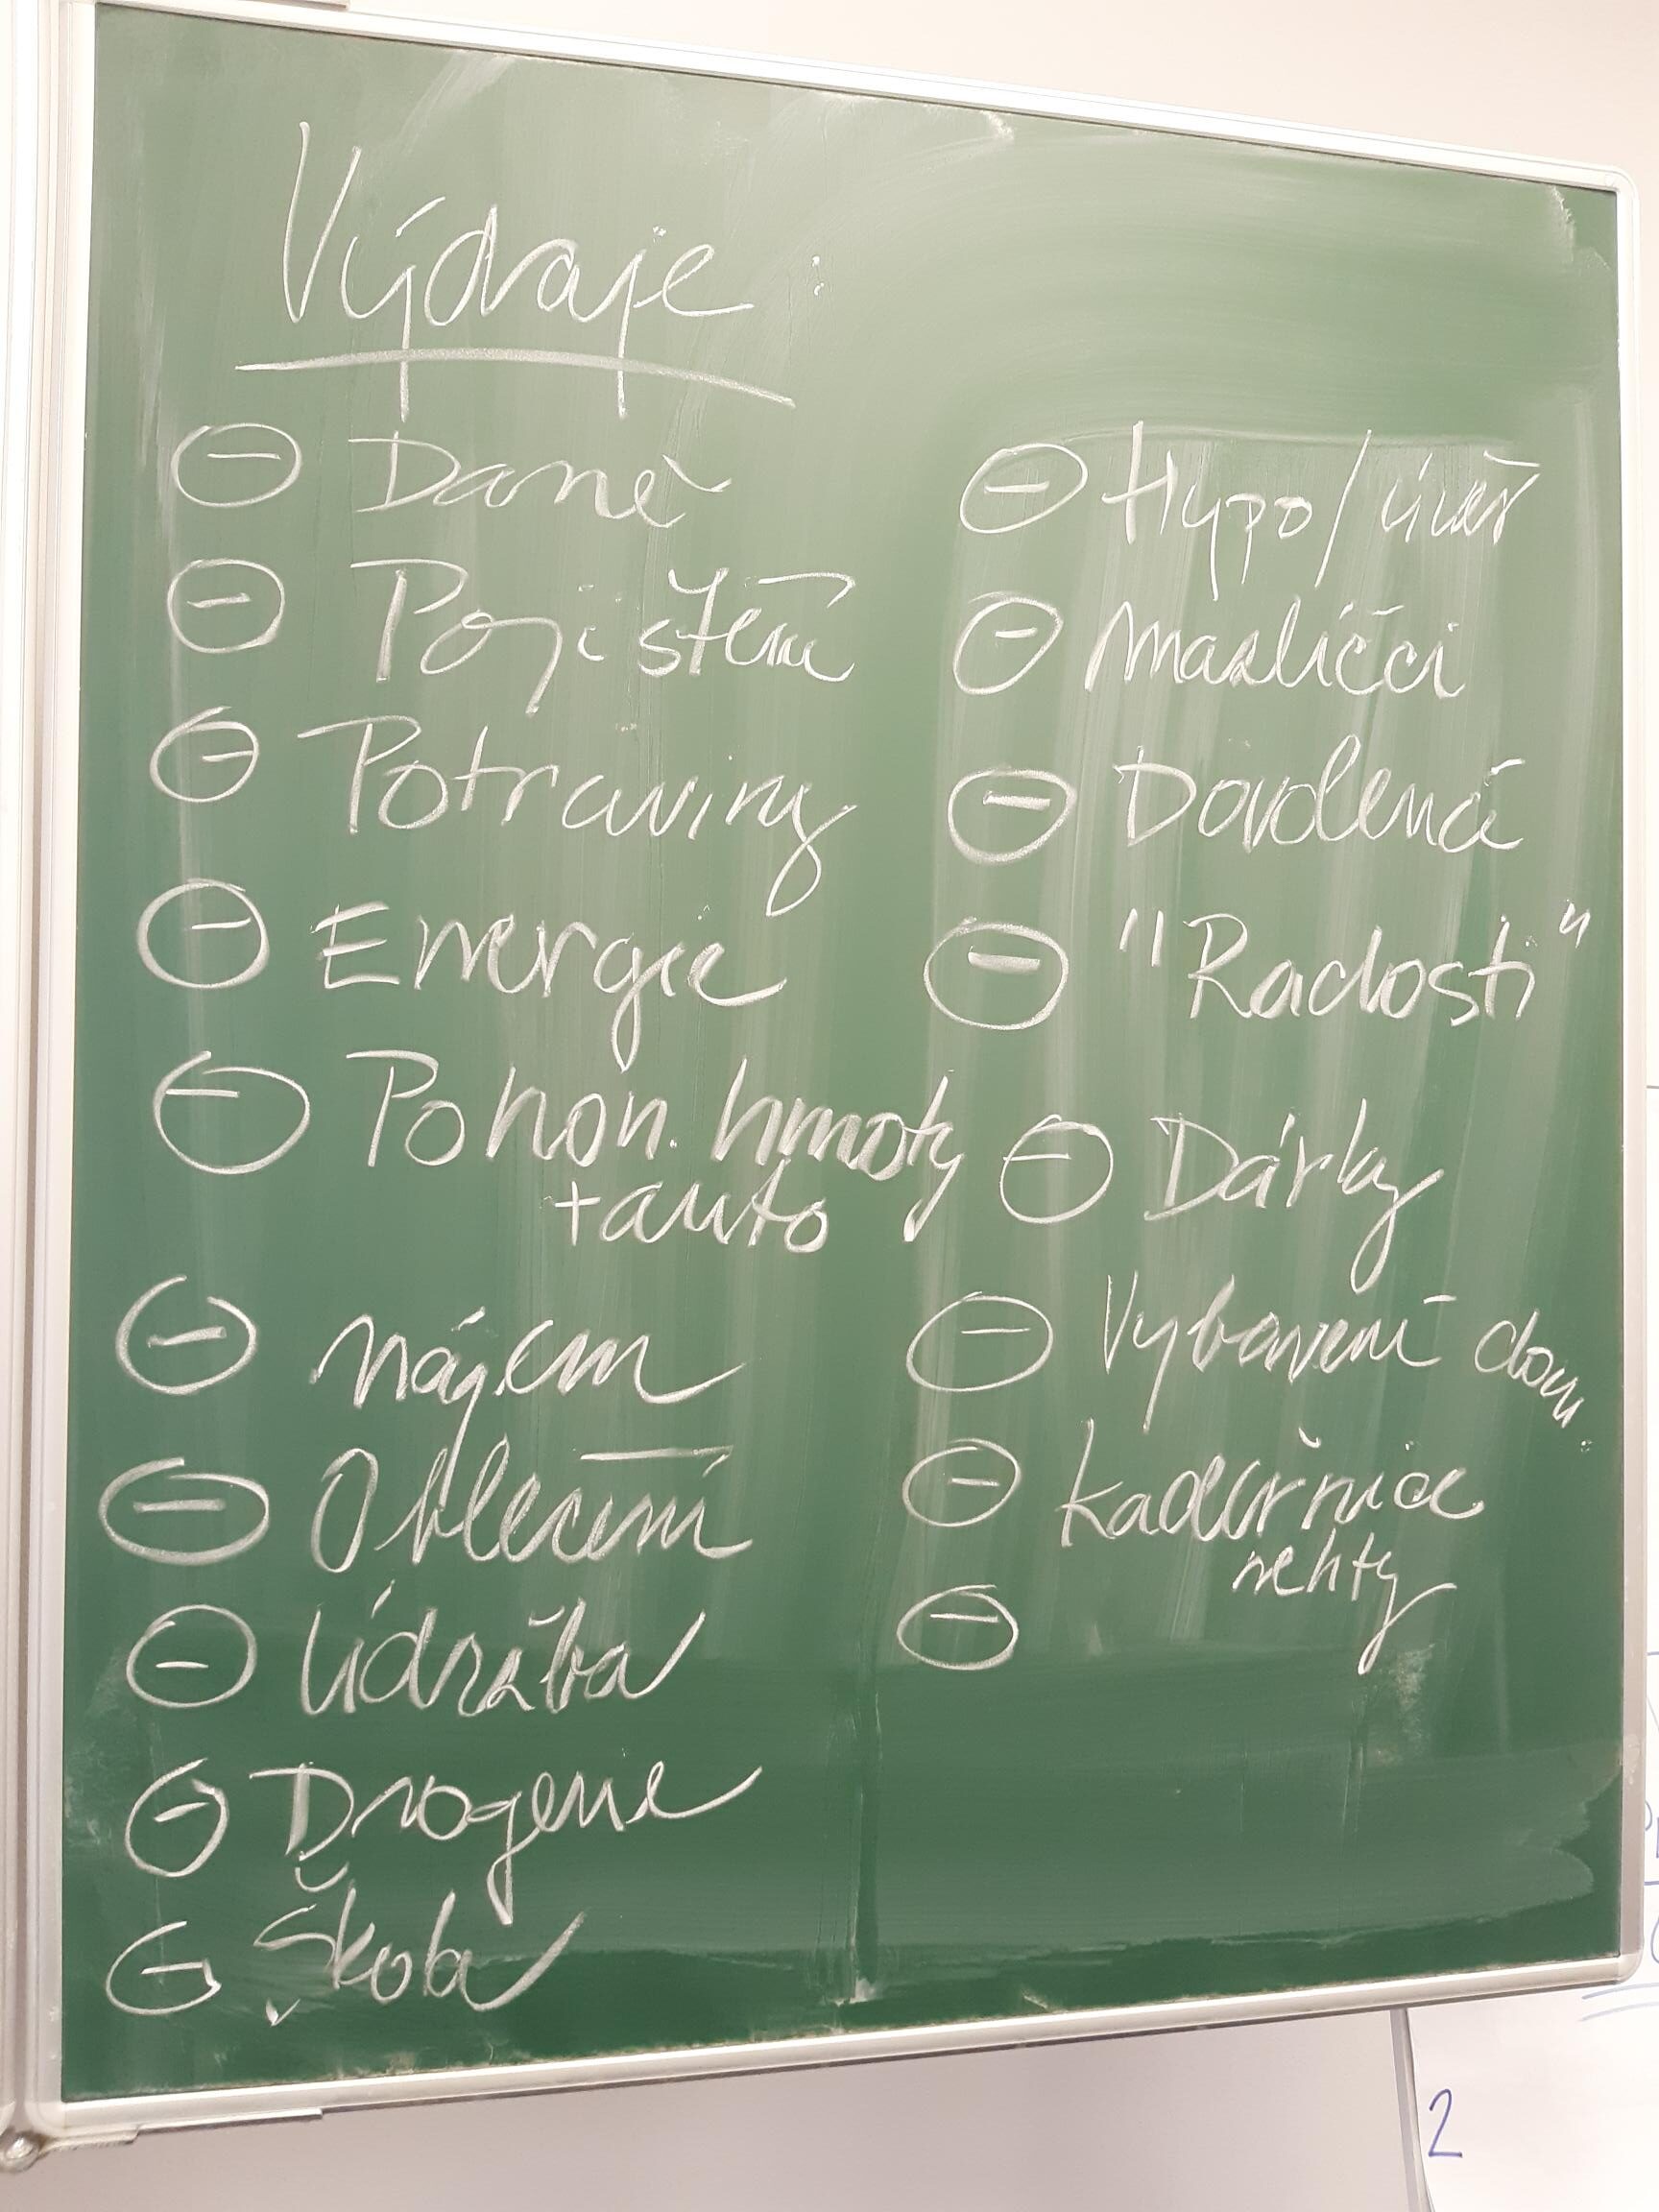 Výdaje:
⊖ Daně
⊖ Pojištění
⊖ Potraviny
⊖ Energie
⊖ Pohon. hmoty
+ auto
⊖ Nájem
⊖ Oblečení
⊖ Údržba
⊖ Drogerie
⊖ Škola
⊖ Hypo/úvěr
⊖ Mazlíčci
⊖ Dovolená
⊖ "Radosti"
⊖ Dárky
⊖ Vybavení dom.
⊖ Kadeřnice
nehty
⊖
2